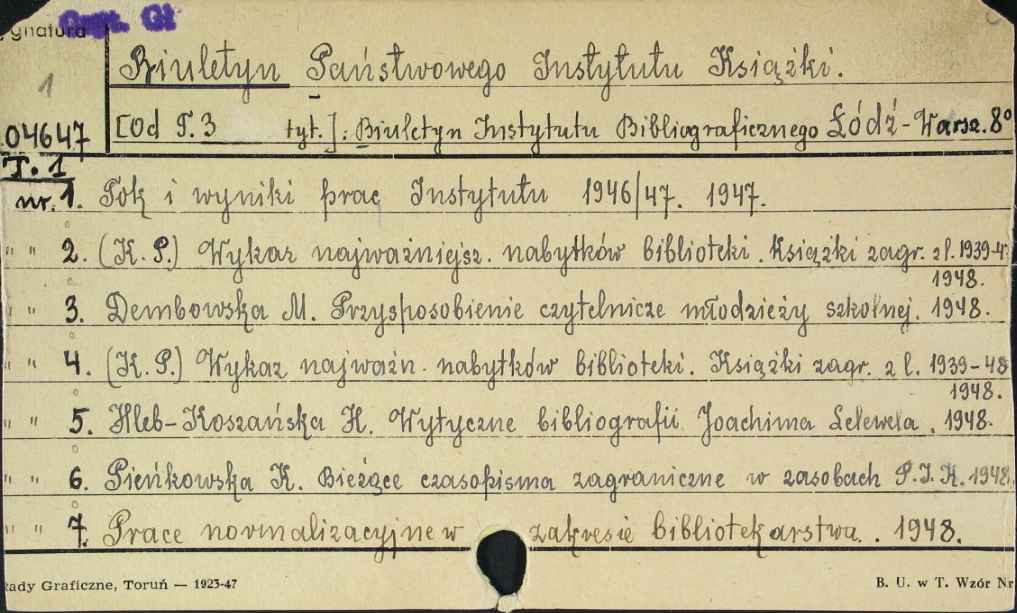 Gł
ygnatura
1
Biuletyn Państwowego Instytutu Książki.
04647 [Od T. 3 tyt.]: Biuletyn Instytutu Bibliograficznego Łódź - Warsz. 8°
T. 1
nr. 1. Tok i wyniki prac Instytutu 1946/47. 1947.
" " 2. (K. P.) Wykaz najważniejsz. nabytków biblioteki. Książki zagr. z l. 1939-4
1948.
" " 3. Dembowska M. Przysposobienie czytelnicze młodzieży szkolnej. 1948.
" " 4. (K. P.) Wykaz najważn. nabytków biblioteki. Książki zagr. z l. 1939-48
1948.
" " 5. Hleb-Koszańska H. Wytyczne bibliografii Joachima Lelewela. 1948.
" " 6. Pieńkowska K. Bieżące czasopisma zagraniczne w zasobach P.I.K. 1948.
" " 7. Prace normalizacyjne w zakresie bibliotekarstwa. 1948.
łady Graficzne, Toruń — 1923-47 B. U. w T. Wzór Nr